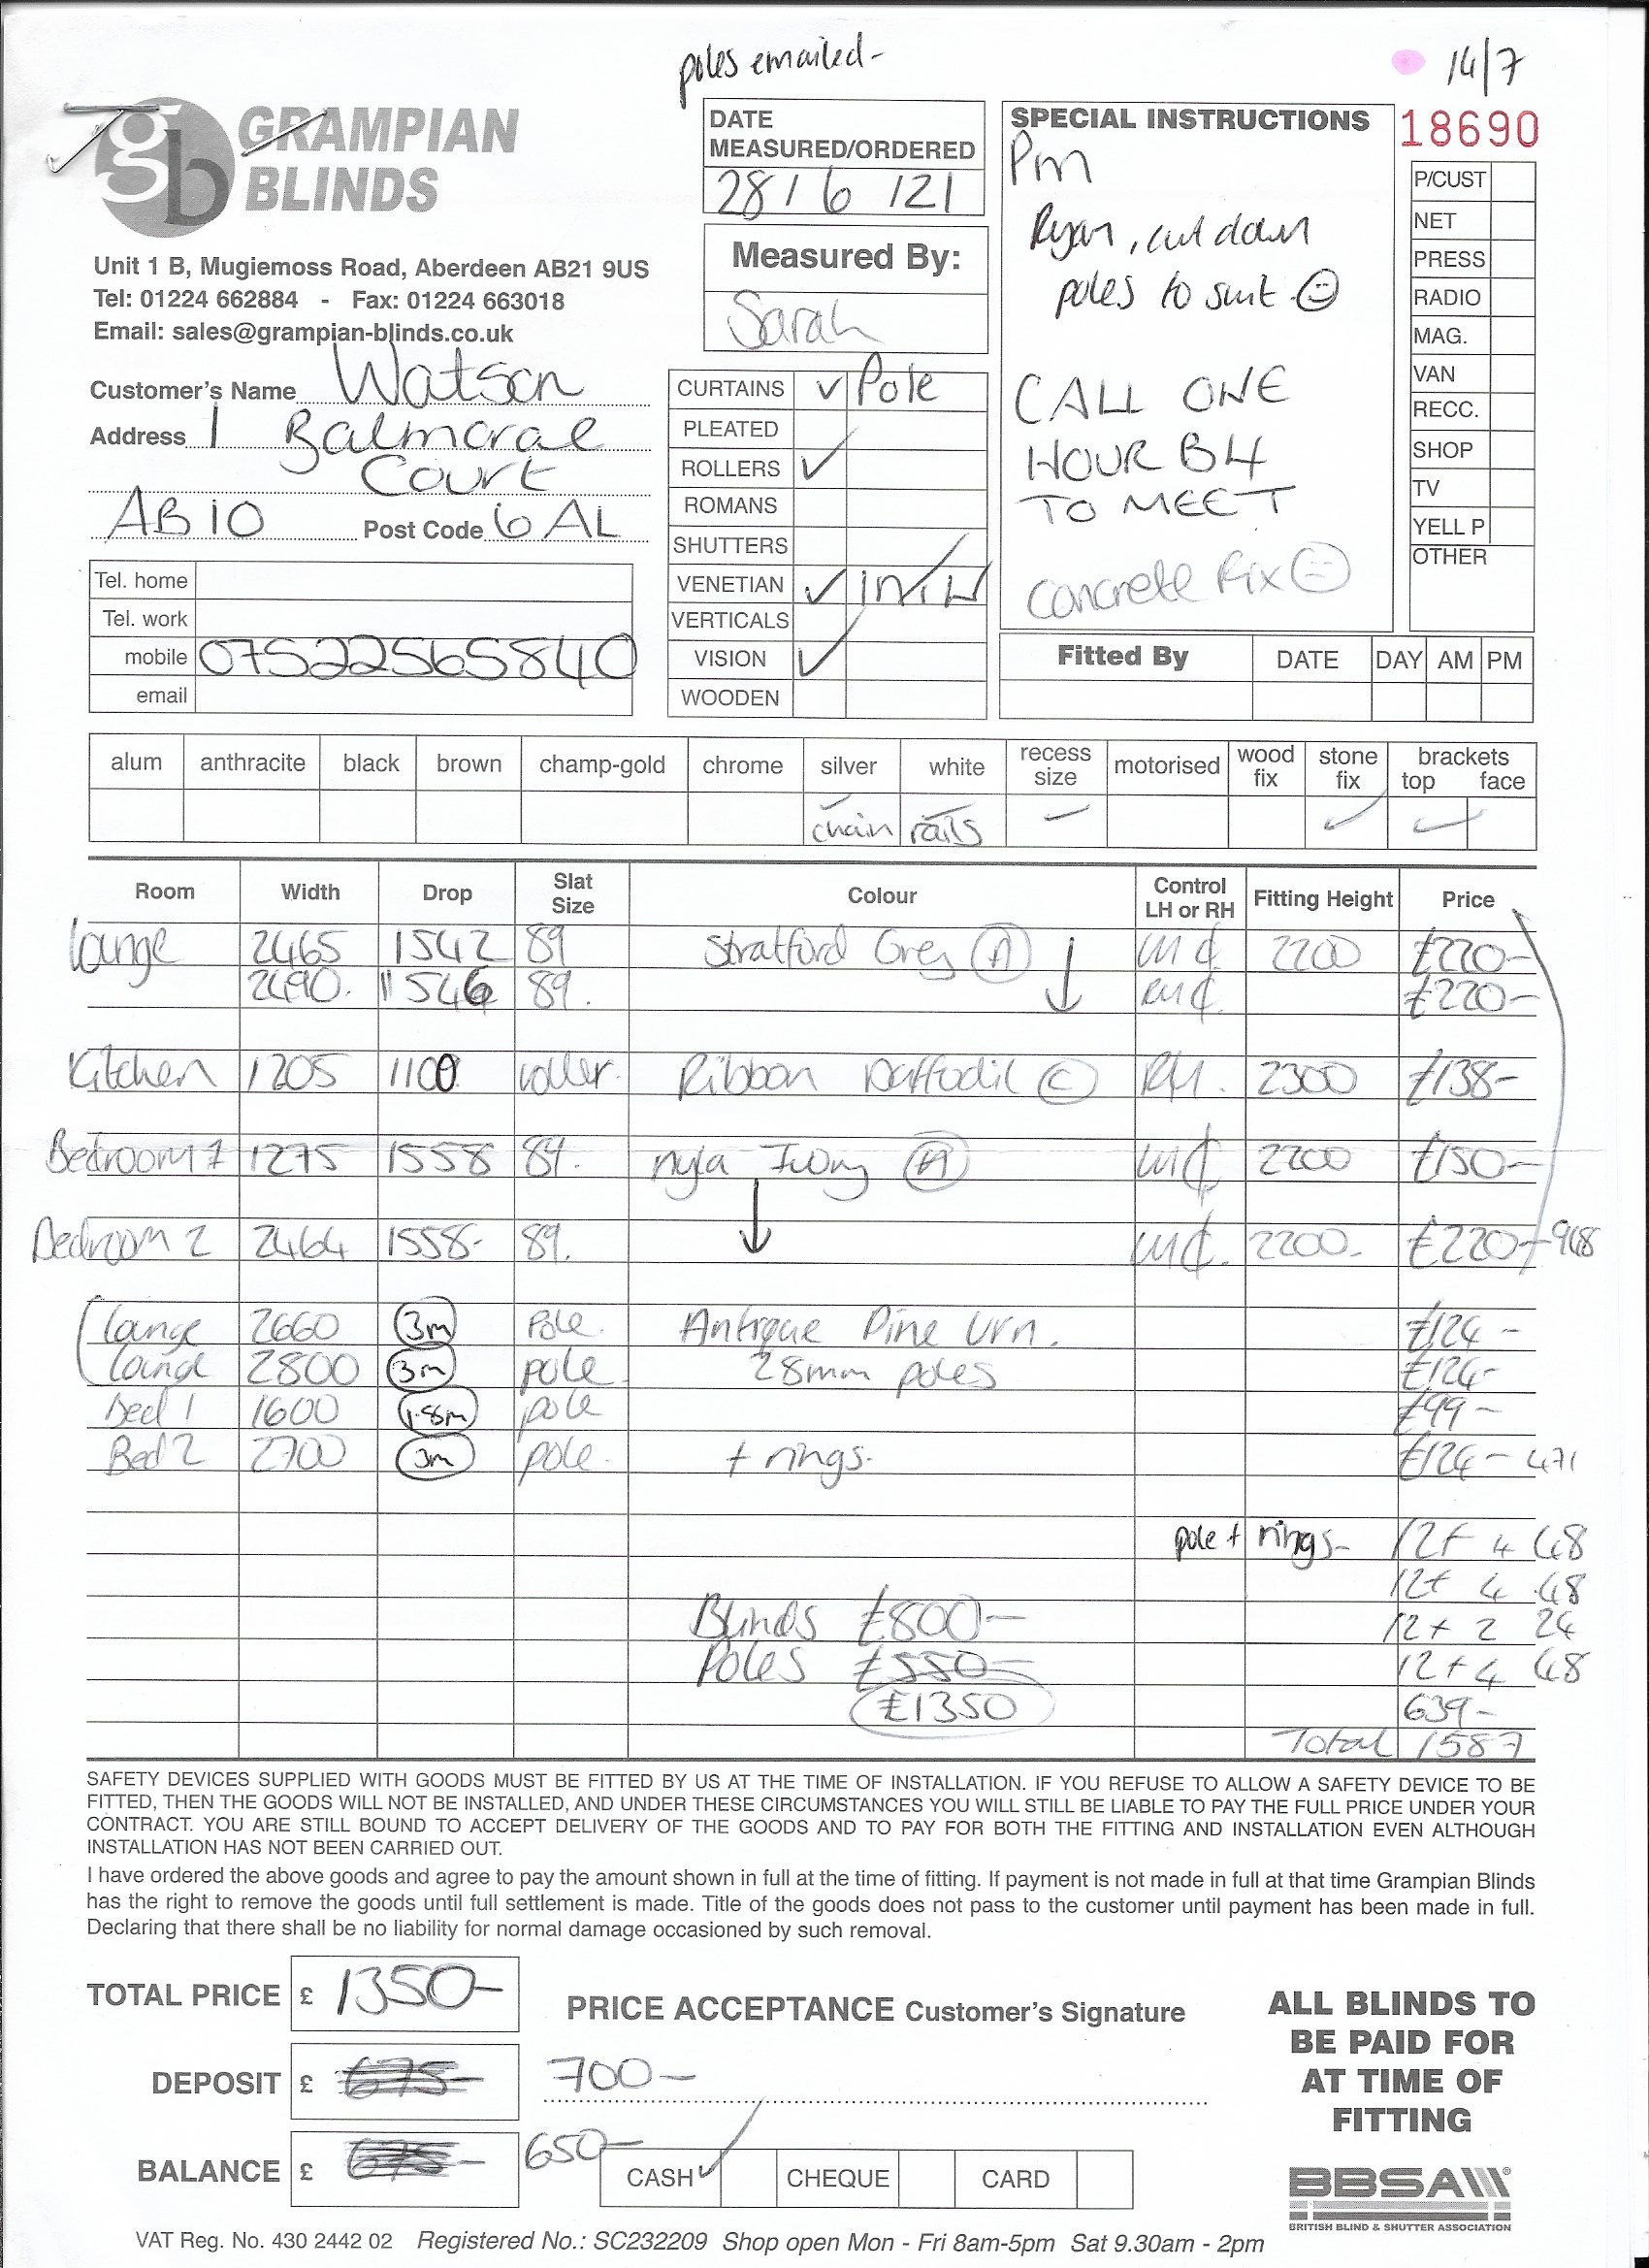 poles emailed-
14/7
gb GRAMPIAN BLINDS
18690
Unit 1 B, Mugiemoss Road, Aberdeen AB21 9US
Tel: 01224 662884 - Fax: 01224 663018
Email: sales@grampian-blinds.co.uk
Customer's Name Watson
Address 1 Balmoral
Court
AB10 Post Code 6AL
Tel. home
Tel. work
mobile 07522565840
email
DATE
MEASURED/ORDERED
28/6/21
Measured By:
Sarah
CURTAINS ✓ Pole
PLEATED
ROLLERS ✓
ROMANS
SHUTTERS
VENETIAN ✓
VERTICALS
VISION ✓
WOODEN
SPECIAL INSTRUCTIONS
Pm
Ryan, cut down
poles to suit ☺
CALL ONE
HOUR B4
TO MEET
Concrete Fix ☺
P/CUST
NET
PRESS
RADIO
MAG.
VAN
RECC.
SHOP
TV
YELL P
OTHER
Fitted By DATE DAY AM PM
alum anthracite black brown champ-gold chrome silver white recess size motorised wood fix stone fix brackets top face
chain rails
Room Width Drop Slat Size Colour Control LH or RH Fitting Height Price
Lounge 2465 1542 89 Stratford Grey (A) 2200 £220-
2490. 1546 89. £220-
Kitchen 1205 1100 roller. Ribbon Daffodil (C) RH. 2300 £138-
Bedroom 1 1275 1558 89. nyla Ivory (A) 2200 £150-
Bedroom 2 2464 1558- 89. 2200- £220- 948
Lounge 2660 (3m) Pole. Antique Pine Urn. £124-
Lounge 2800 (3m) pole 28mm poles £124-
Bed 1 1600 (1.8m) pole £99-
Bed 2 2700 (3m) pole. + rings- £124- 471
pole + rings- 12+ 4 48
12+ 4 48
Blinds £800- 12+ 2 24
Poles £550- 12+4 48
£1350 639-
Total 1587
SAFETY DEVICES SUPPLIED WITH GOODS MUST BE FITTED BY US AT THE TIME OF INSTALLATION. IF YOU REFUSE TO ALLOW A SAFETY DEVICE TO BE
FITTED, THEN THE GOODS WILL NOT BE INSTALLED, AND UNDER THESE CIRCUMSTANCES YOU WILL STILL BE LIABLE TO PAY THE FULL PRICE UNDER YOUR
CONTRACT. YOU ARE STILL BOUND TO ACCEPT DELIVERY OF THE GOODS AND TO PAY FOR BOTH THE FITTING AND INSTALLATION EVEN ALTHOUGH
INSTALLATION HAS NOT BEEN CARRIED OUT.
I have ordered the above goods and agree to pay the amount shown in full at the time of fitting. If payment is not made in full at that time Grampian Blinds
has the right to remove the goods until full settlement is made. Title of the goods does not pass to the customer until payment has been made in full.
Declaring that there shall be no liability for normal damage occasioned by such removal.
TOTAL PRICE £ 1350-
PRICE ACCEPTANCE Customer's Signature
DEPOSIT £ 675- 700-
BALANCE £ 675- 650-
CASH ✓ CHEQUE CARD
ALL BLINDS TO
BE PAID FOR
AT TIME OF
FITTING
BBSA
BRITISH BLIND & SHUTTER ASSOCIATION
VAT Reg. No. 430 2442 02 Registered No.: SC232209 Shop open Mon - Fri 8am-5pm Sat 9.30am - 2pm